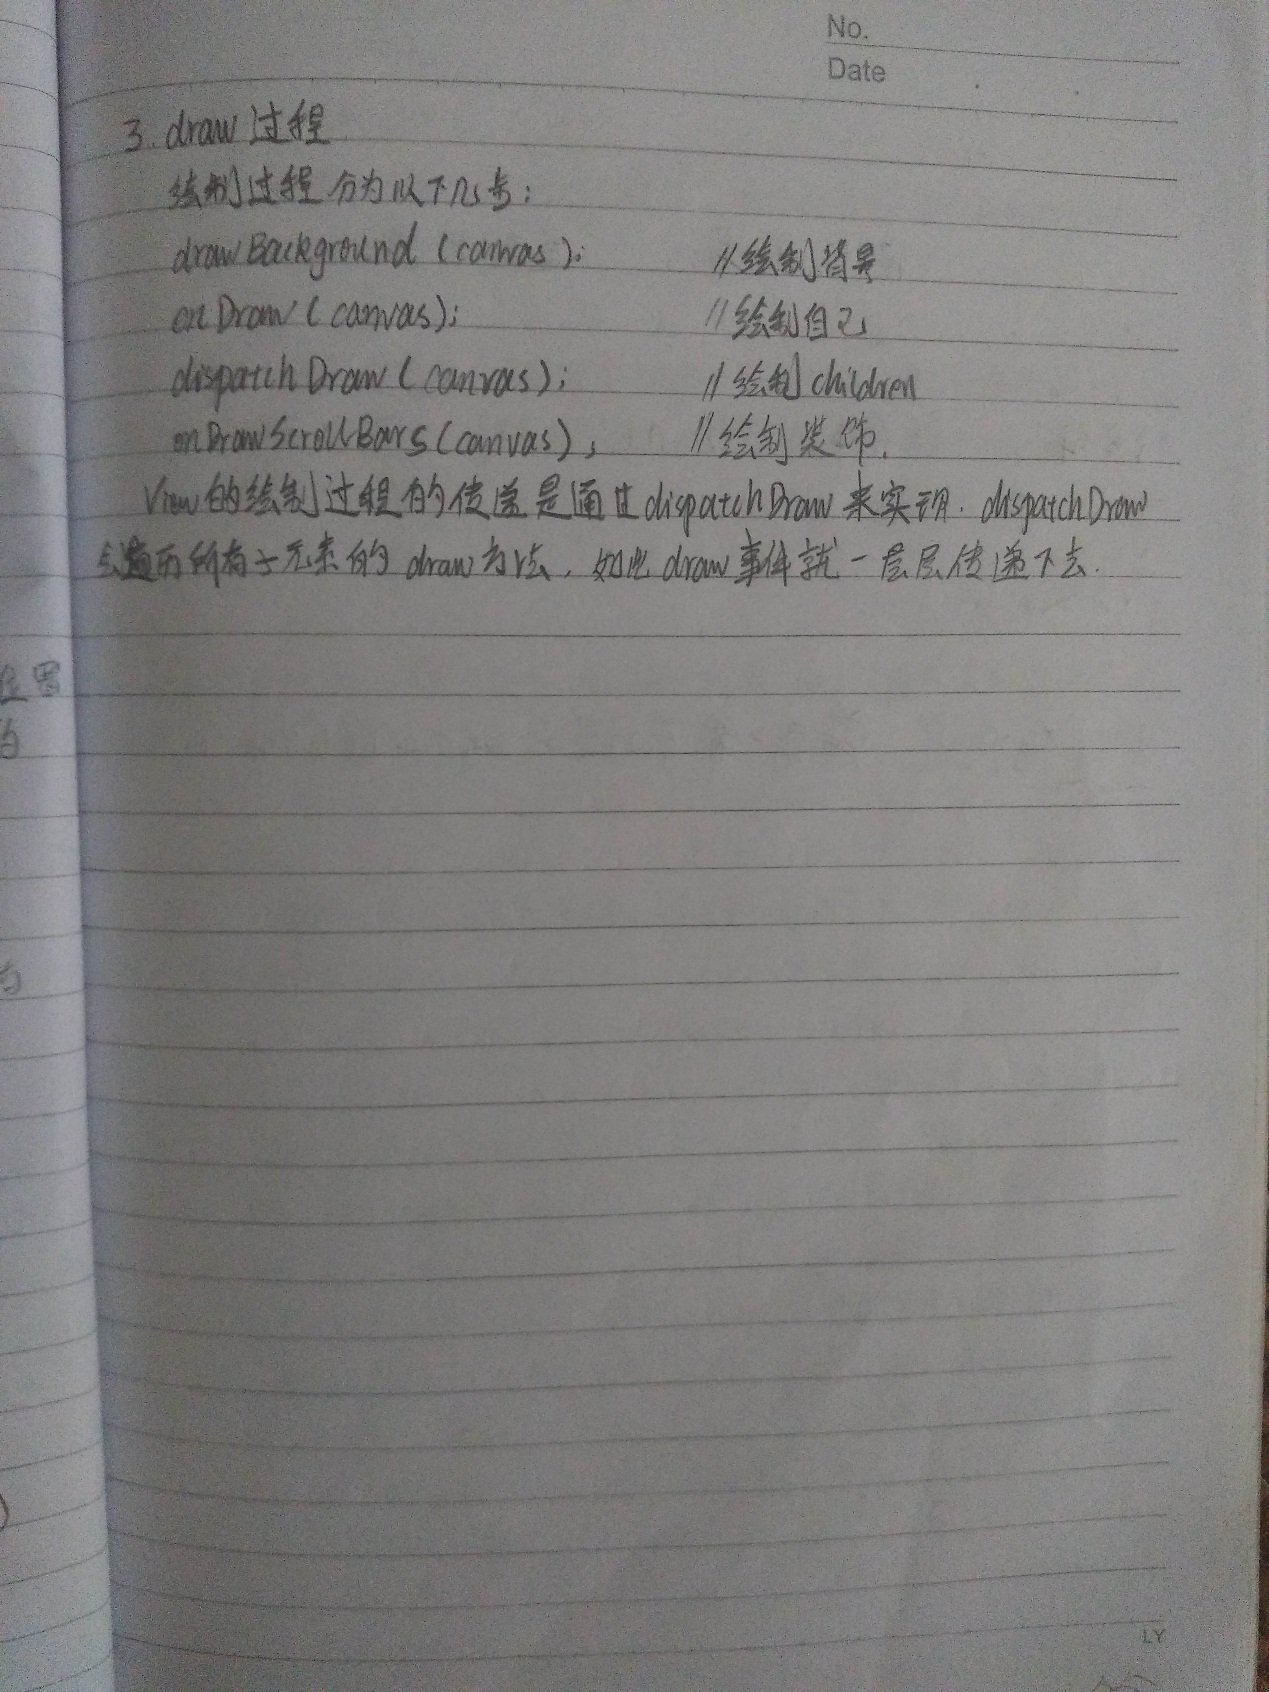 No.
Date
3. draw过程
绘制过程分为以下几步：
drawBackground (canvas); //绘制背景
onDraw (canvas); //绘制自己
dispatchDraw (canvas); //绘制children
onDrawScrollBars (canvas); //绘制装饰.
View的绘制过程的传递是通过dispatchDraw来实现. dispatchDraw
会遍历所有子元素的 draw方法, 如此 draw事件就一层层传递下去.
位置
的
LY